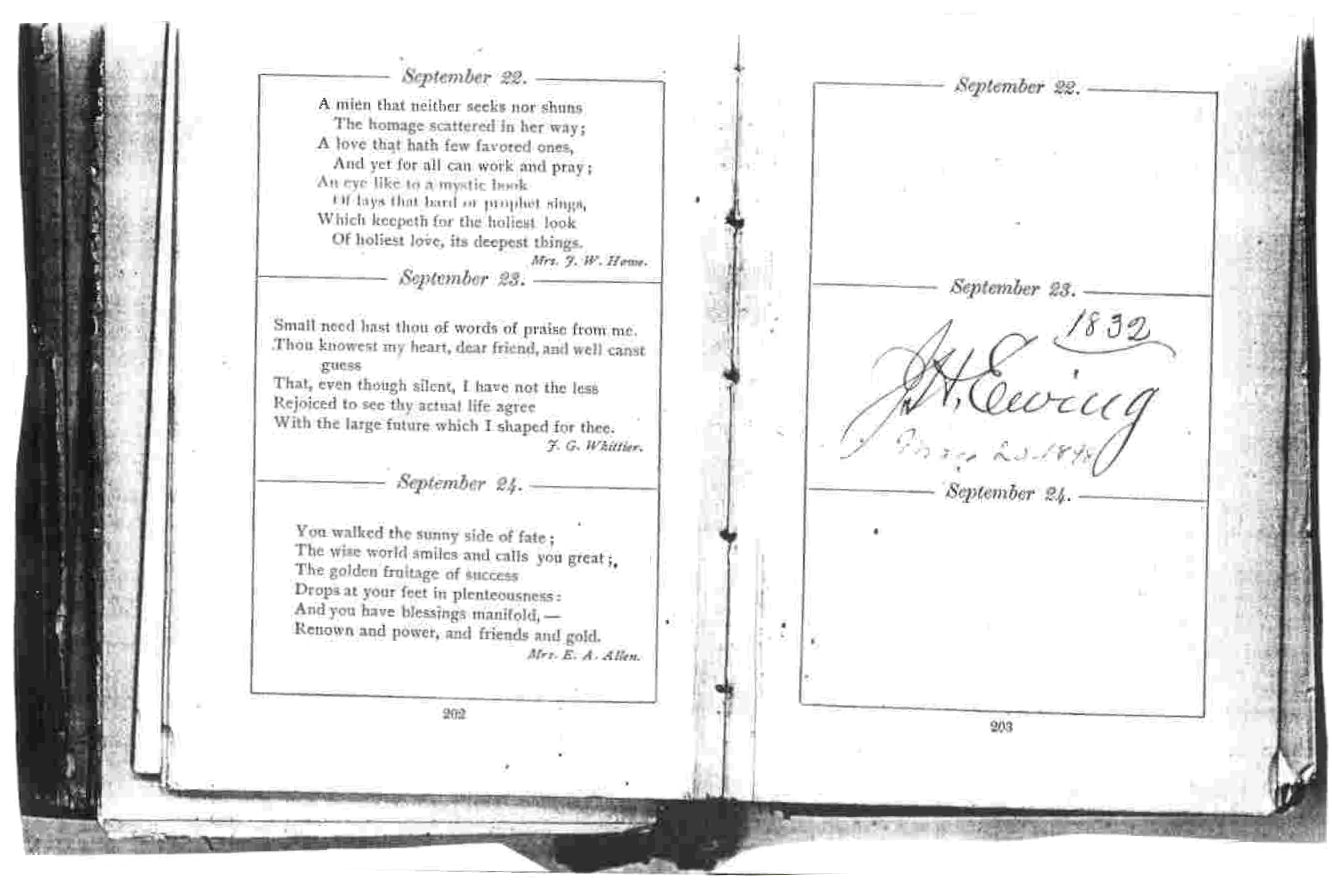 September 22.
A mien that neither seeks nor shuns
The homage scattered in her way;
A love that hath few favored ones,
And yet for all can work and pray;
An eye like to a mystic book
Of lays that bard or prophet sings,
Which keepeth for the holiest look
Of holiest love, its deepest things.
Mrs. J. W. Howe.
September 23.
Small need hast thou of words of praise from me.
Thou knowest my heart, dear friend, and well canst
guess
That, even though silent, I have not the less
Rejoiced to see thy actual life agree
With the large future which I shaped for thee.
J. G. Whittier.
September 24.
You walked the sunny side of fate;
The wise world smiles and calls you great;
The golden fruitage of success
Drops at your feet in plenteousness:
And you have blessings manifold,—
Renown and power, and friends and gold.
Mrs. E. A. Allen.
202
September 22.
September 23.
1832
J.H. Ewing
September 24.
203